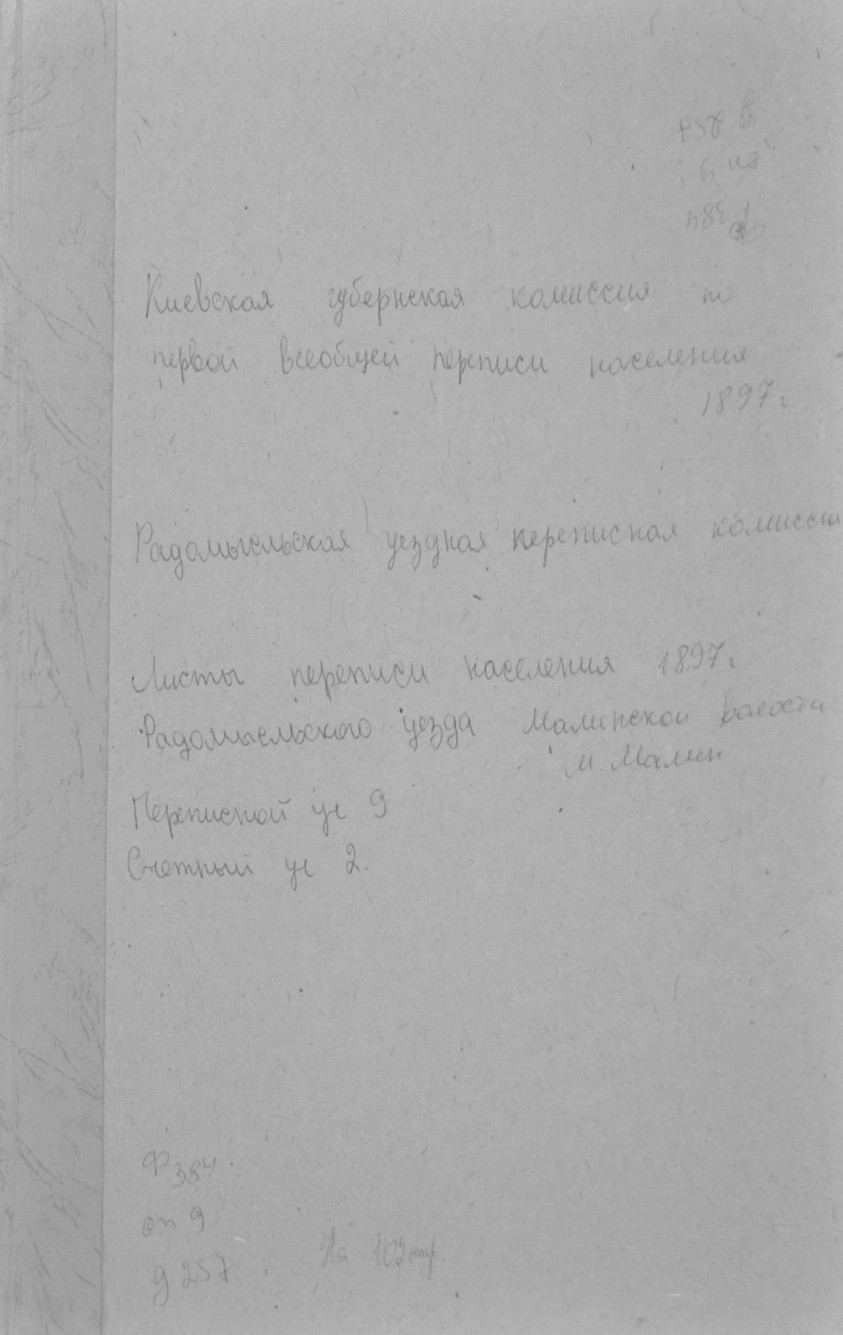 д 257
оп 9
ф 384
Киевская губернская комиссия по
первой всеобщей переписи населения
1897г.
Радомысльская уездная переписная комиссия
Листы переписи населения 1897г.
Радомысльского уезда Малинской волости
м. Малин
Переписной уч 9
Счетный уч 2.
Ф 384
оп 9
д 257
На 102 стр